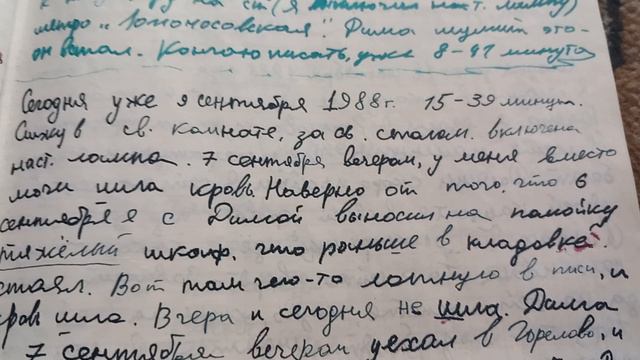 к на ст (я включил наст. лампу)
метро „Ломоносовская". Дима это-
он встал. Кончаю писать, уже 8-41 минута
Сегодня уже 9 сентября 1988г. 15-39 минут.
Сижу в св. комнате, за св. столом. включена
наст. лампа. 7 сентября вечером, у меня вместо
мочи шла кровь. Наверно от того, что 6
сентября я с Димой выносил на помойку
тяжёлый шкаф, что раньше в кладовке
стоял. Вот там чего-то лопнуло в писи, и
кровь шла. Вчера и сегодня не шла. Дима
7 сентября вечером уехал в Горелово, и